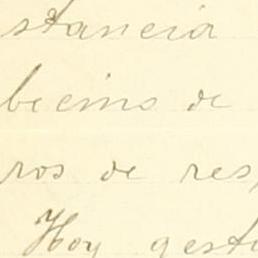 stancia
becino de
ros de res,
Hoy gesti